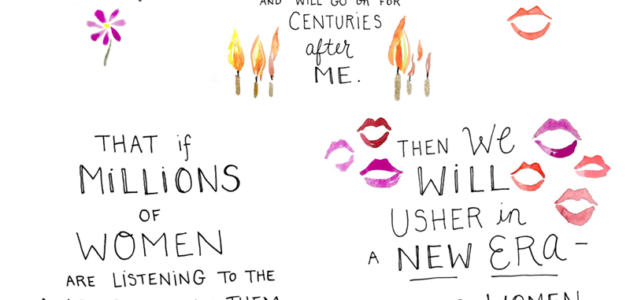 AND WILL GO ON FOR
CENTURIES
after
ME.
THAT if
MiLLiONS
OF
WOMEN
ARE LiSTENiNG TO THE
THEM
THEN We
WiLL
USHER in
A NEW ERA-
WOMEN